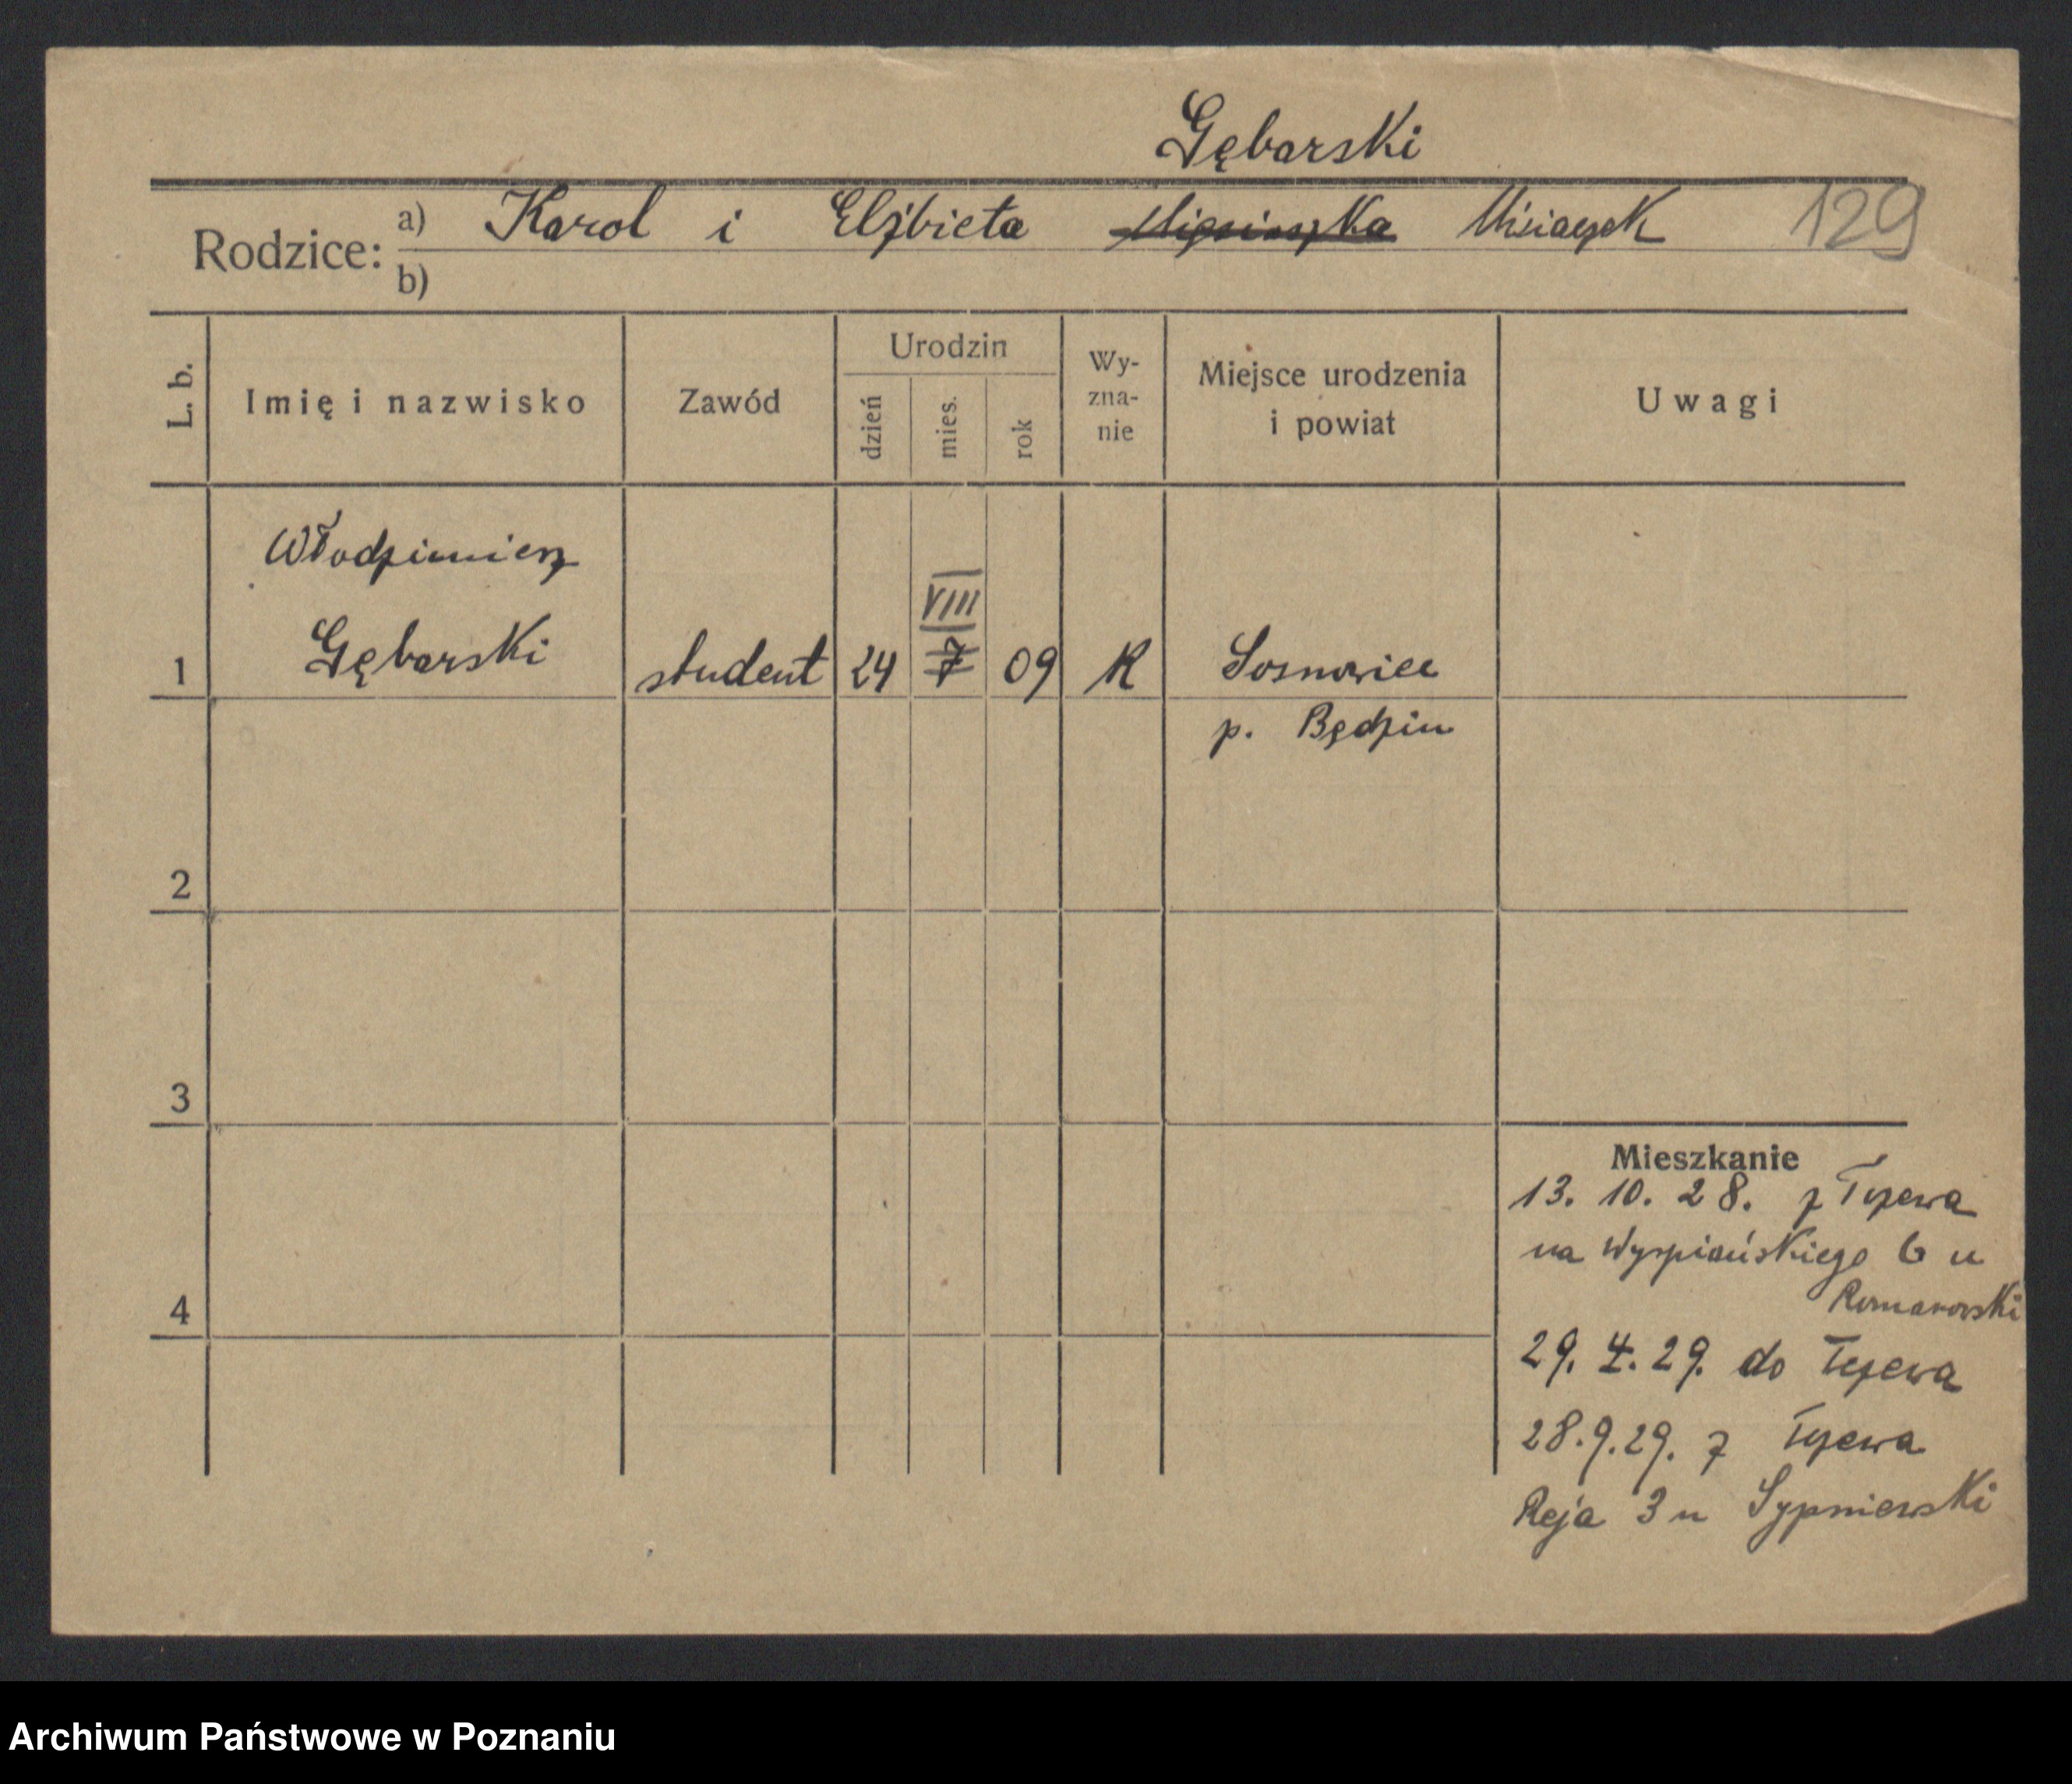 Gębarski
Rodzice: a) Karol i Elżbieta Misiaszek 129
b)
L. b.
Imię i nazwisko
Zawód
Urodzin
dzień
mies.
rok
Wy-
zna-
nie
Miejsce urodzenia
i powiat
Uwagi
Włodzimierz
VIII
1 Gębarski student 24 7 09 K Sosnowiec
p. Będzin
2
3
Mieszkanie
13. 10. 28. z Tczewa
na Wyspiańskiego 6 u
4
Romanowski
29. 4. 29. do Tczewa
28. 9. 29. z Tczewa
Reja 3 u Sypniewski
Archiwum Państwowe w Poznaniu